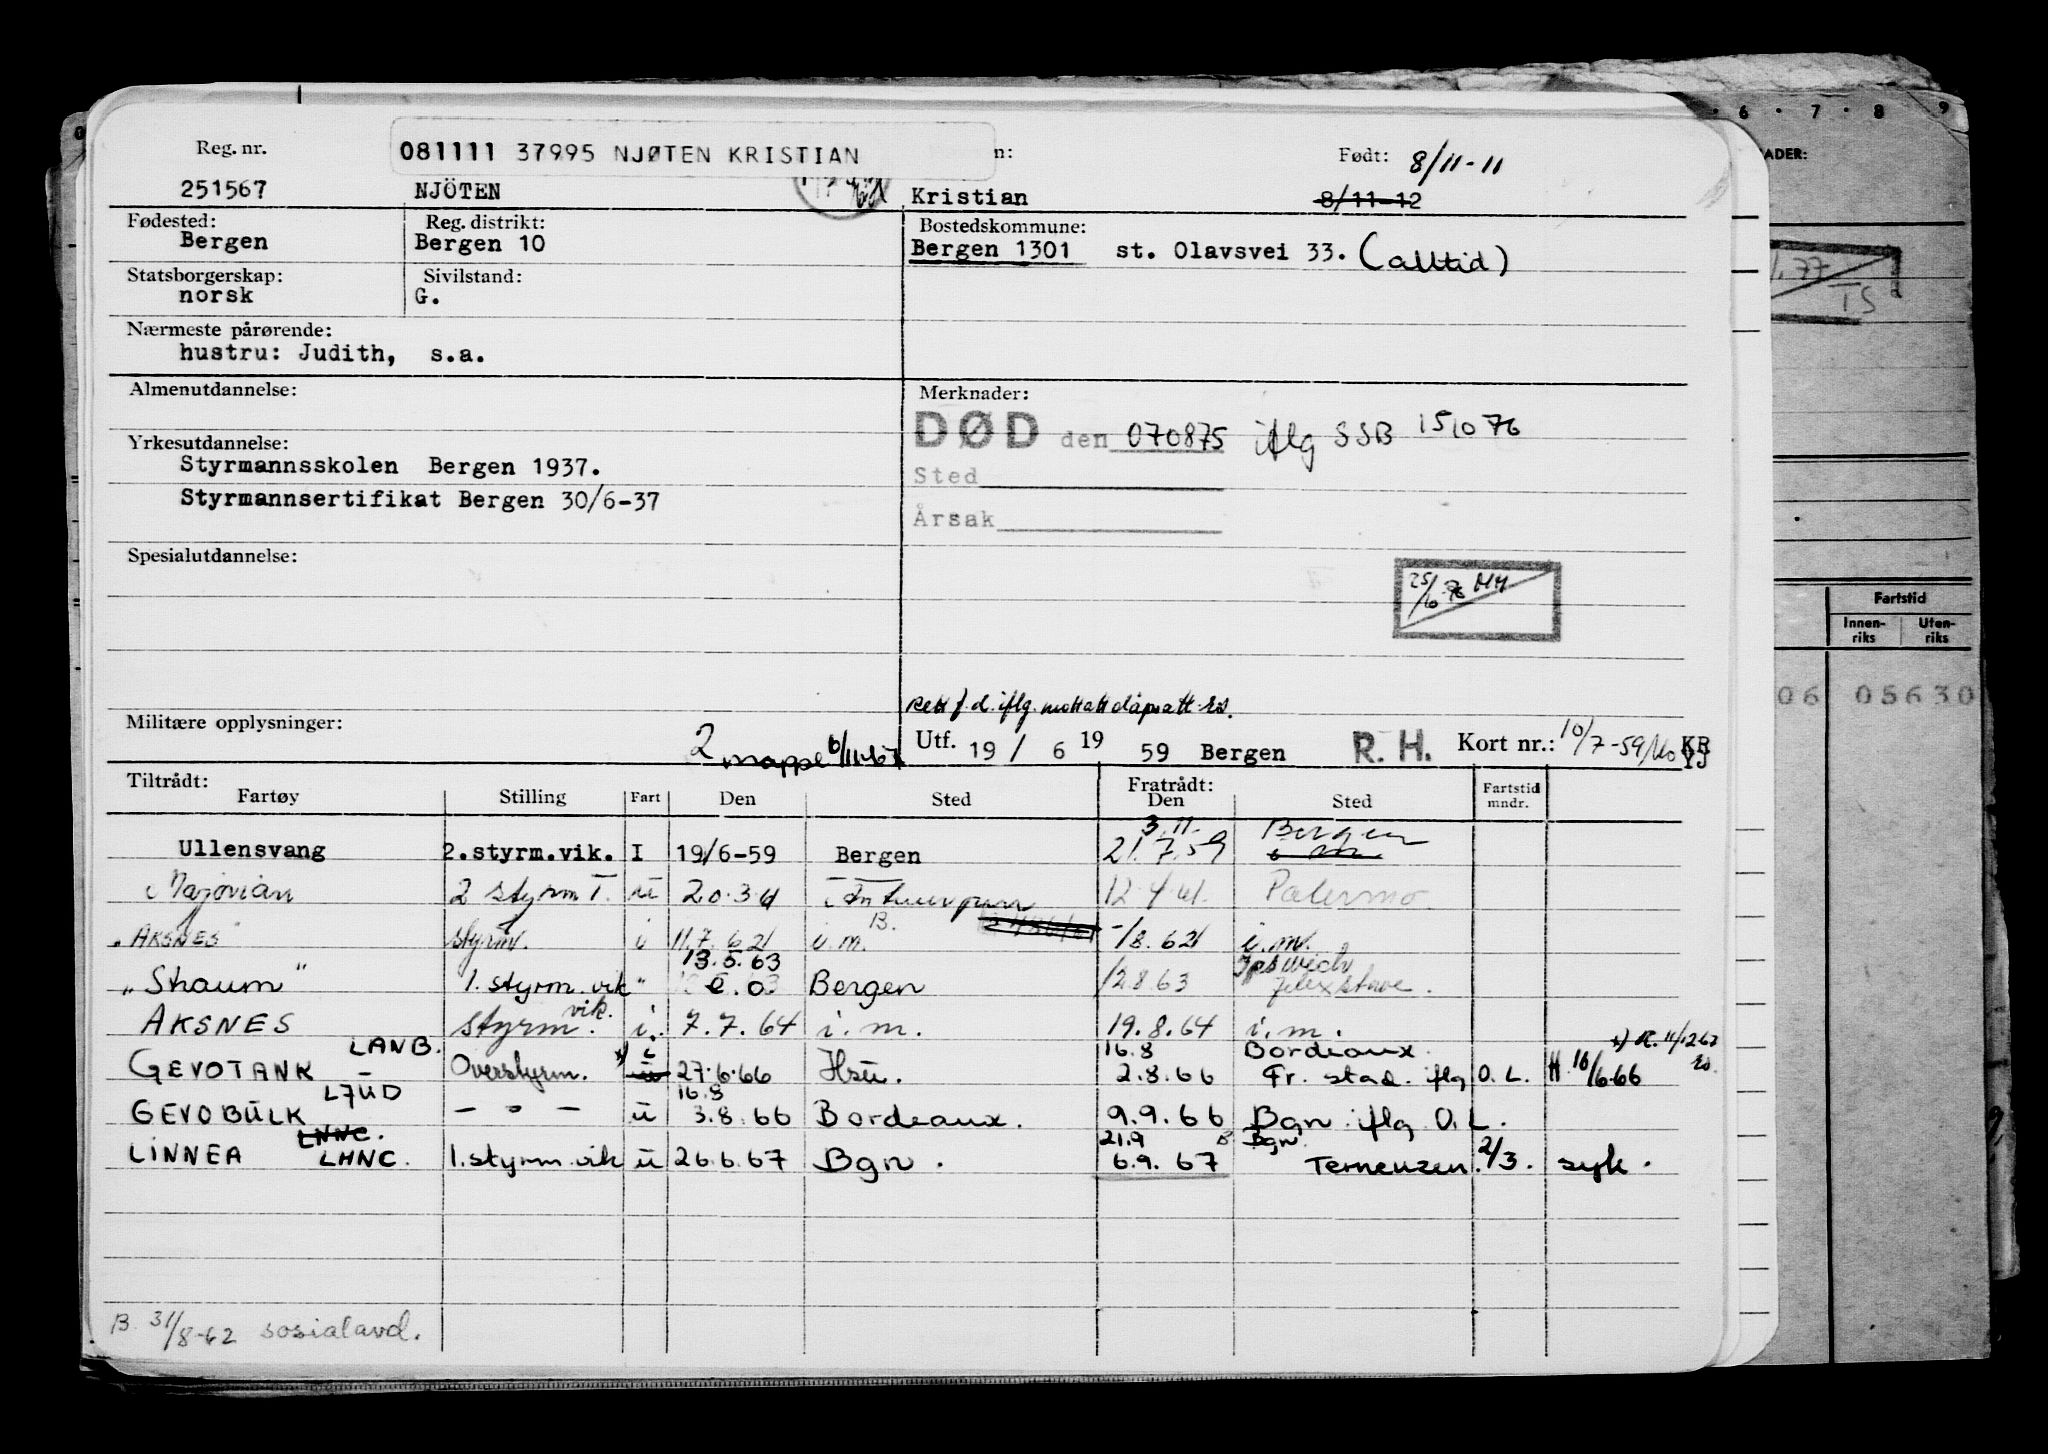 Reg. nr.
081111 37995 NJØTEN KRISTIAN
n:
Født: 8/11-11
251567 NJÖTEN Kristian 8/11-12
Fødested: Reg. distrikt: Bostedskommune:
Bergen Bergen 10 Bergen 1301 st. Olavsvei 33. (alltid)
Statsborgerskap: Sivilstand:
norsk G.
Nærmeste pårørende:
hustru: Judith, s.a.
Almenutdannelse: Merknader:
DØD den 070875 iflg SSB 151076
Yrkesutdannelse:
Styrmannsskolen Bergen 1937. Sted
Styrmannsertifikat Bergen 30/6-37
Årsak
Spesialutdannelse:
Rett f.d. iflg. mottatt dåpsatt.
Militære opplysninger:
2 mappe 6/11-67
Utf. 19 / 6 19 59 Bergen R. H. Kort nr.: 10/7-59
Tiltrådt: Fratrådt:
Fartøy Stilling Fart Den Sted Den Sted Fartstid mndr.
3.11. Bergen
Ullensvang 2.styrm.vik. I 19/6-59 Bergen 21.7.59
2 styrm 20.3.61 12.4.61. Palermo
B.
"AKSNES" styrm. i 11.7.62 i.m. -/8.62 i.m.
13.5.63 Ipswich
"Straum" 1. styrm. vik " Bergen 12.8.63
AKSNES styrm. vik. i. 7.7.64 i.m. 19.8.64 i.m.
LANB. 16.8 Bordeaux.
GEVOTANK Overstyrm. ü 27.6.66 Hsu. 2.8.66 Fr. stad. iflg O.L. 16/6.66
LJUD 16.8
GEVOBULK — " — ü 3.8.66 Bordeaux. 9.9.66 Bgn iflg O.L.
LNNC. 21.9 Bgn
LINNEA LHNC. 1. styrm. vik ü 26.6.67 Bgn. 6.9.67 Terneuzen. 2/3. syk.
B. 31/8-62 sosialavd.
6 · 7 · 8 9
ADER:
TS
Fartstid
Innen-riks Uten-riks
06 05630